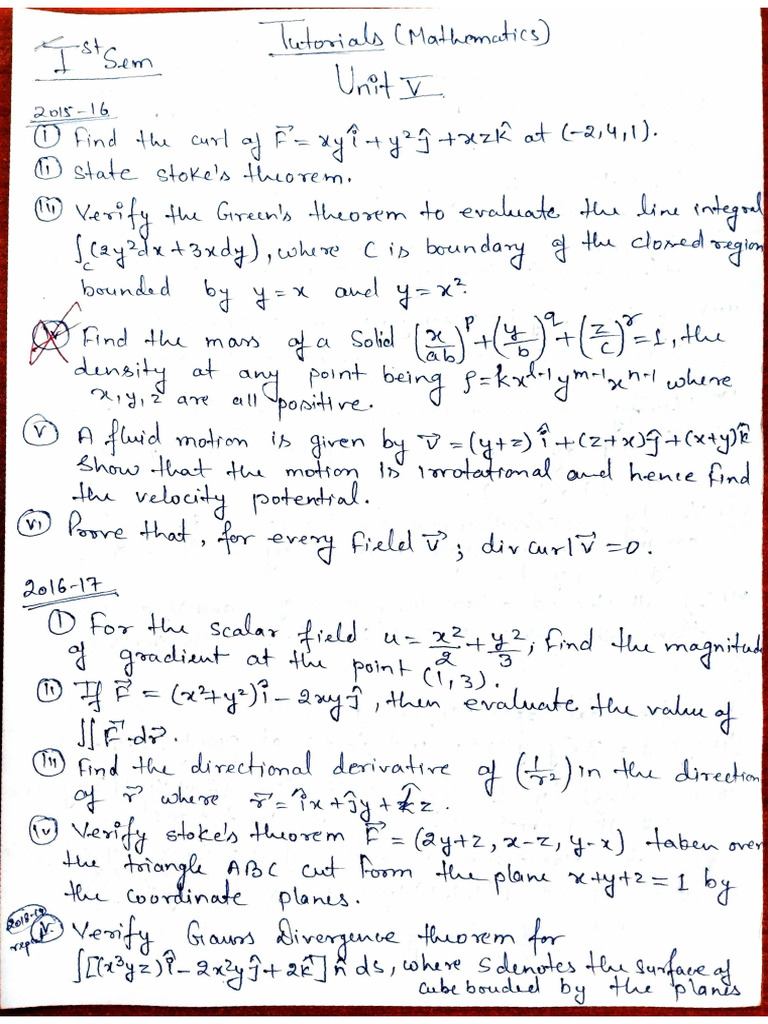 Tutorials (Mathematics)
Ist Sem
Unit V
2015-16
(i) Find the curl of F⃗ = xyî + y²ĵ + xzk̂ at (-2,4,1).
(ii) State stoke's theorem.
(iii) Verify the Green's theorem to evaluate the line integral
∫c(2y²dx + 3xdy), where C is boundary of the closed region
bounded by y=x and y=x².
(iv) Find the mass of a Solid (x/ab)^p + (y/b)^q + (z/c)^r = 1, the
density at any point being ρ = kx^(l-1) y^(m-1) x^(n-1) where
x, y, z are all positive.
(v) A fluid motion is given by v⃗ = (y+z)î + (z+x)ĵ + (x+y)k̂
Show that the motion is irrotational and hence find
the velocity potential.
(vi) Prove that, for every field v⃗; div curl v⃗ = 0.
2016-17
(i) For the scalar field u = x²/2 + y²/3; find the magnitud
of gradient at the point (1,3).
(ii) If F⃗ = (x²+y²)î - 2xyĵ, then evaluate the value of
∫∫F⃗.dr⃗.
(iii) Find the directional derivative of (1/r²) in the direction
of r⃗ where r⃗ = îx + ĵy + k̂z.
(iv) Verify stoke's theorem F⃗ = (2y+z, x-z, y-x) taken over
the triangle ABC cut form the plane x+y+z=1 by
the coordinate planes.
(v) Verify Gauss Divergence theorem for
∫[(x³yz)î - 2x²yĵ + 2k̂] n̂ ds, where S denotes the surface of
cube bouded by the planes